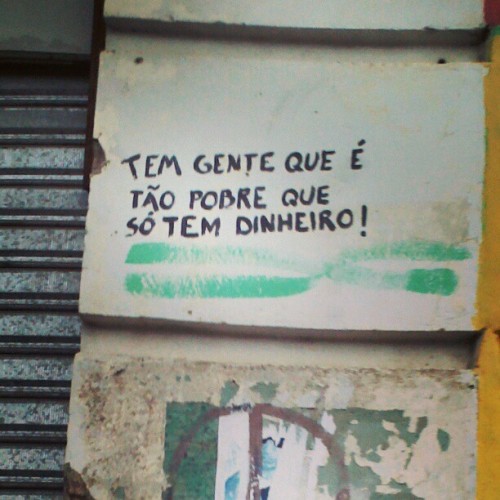 TEM GENTE QUE É
TÃO POBRE QUE
SÓ TEM DINHEIRO!